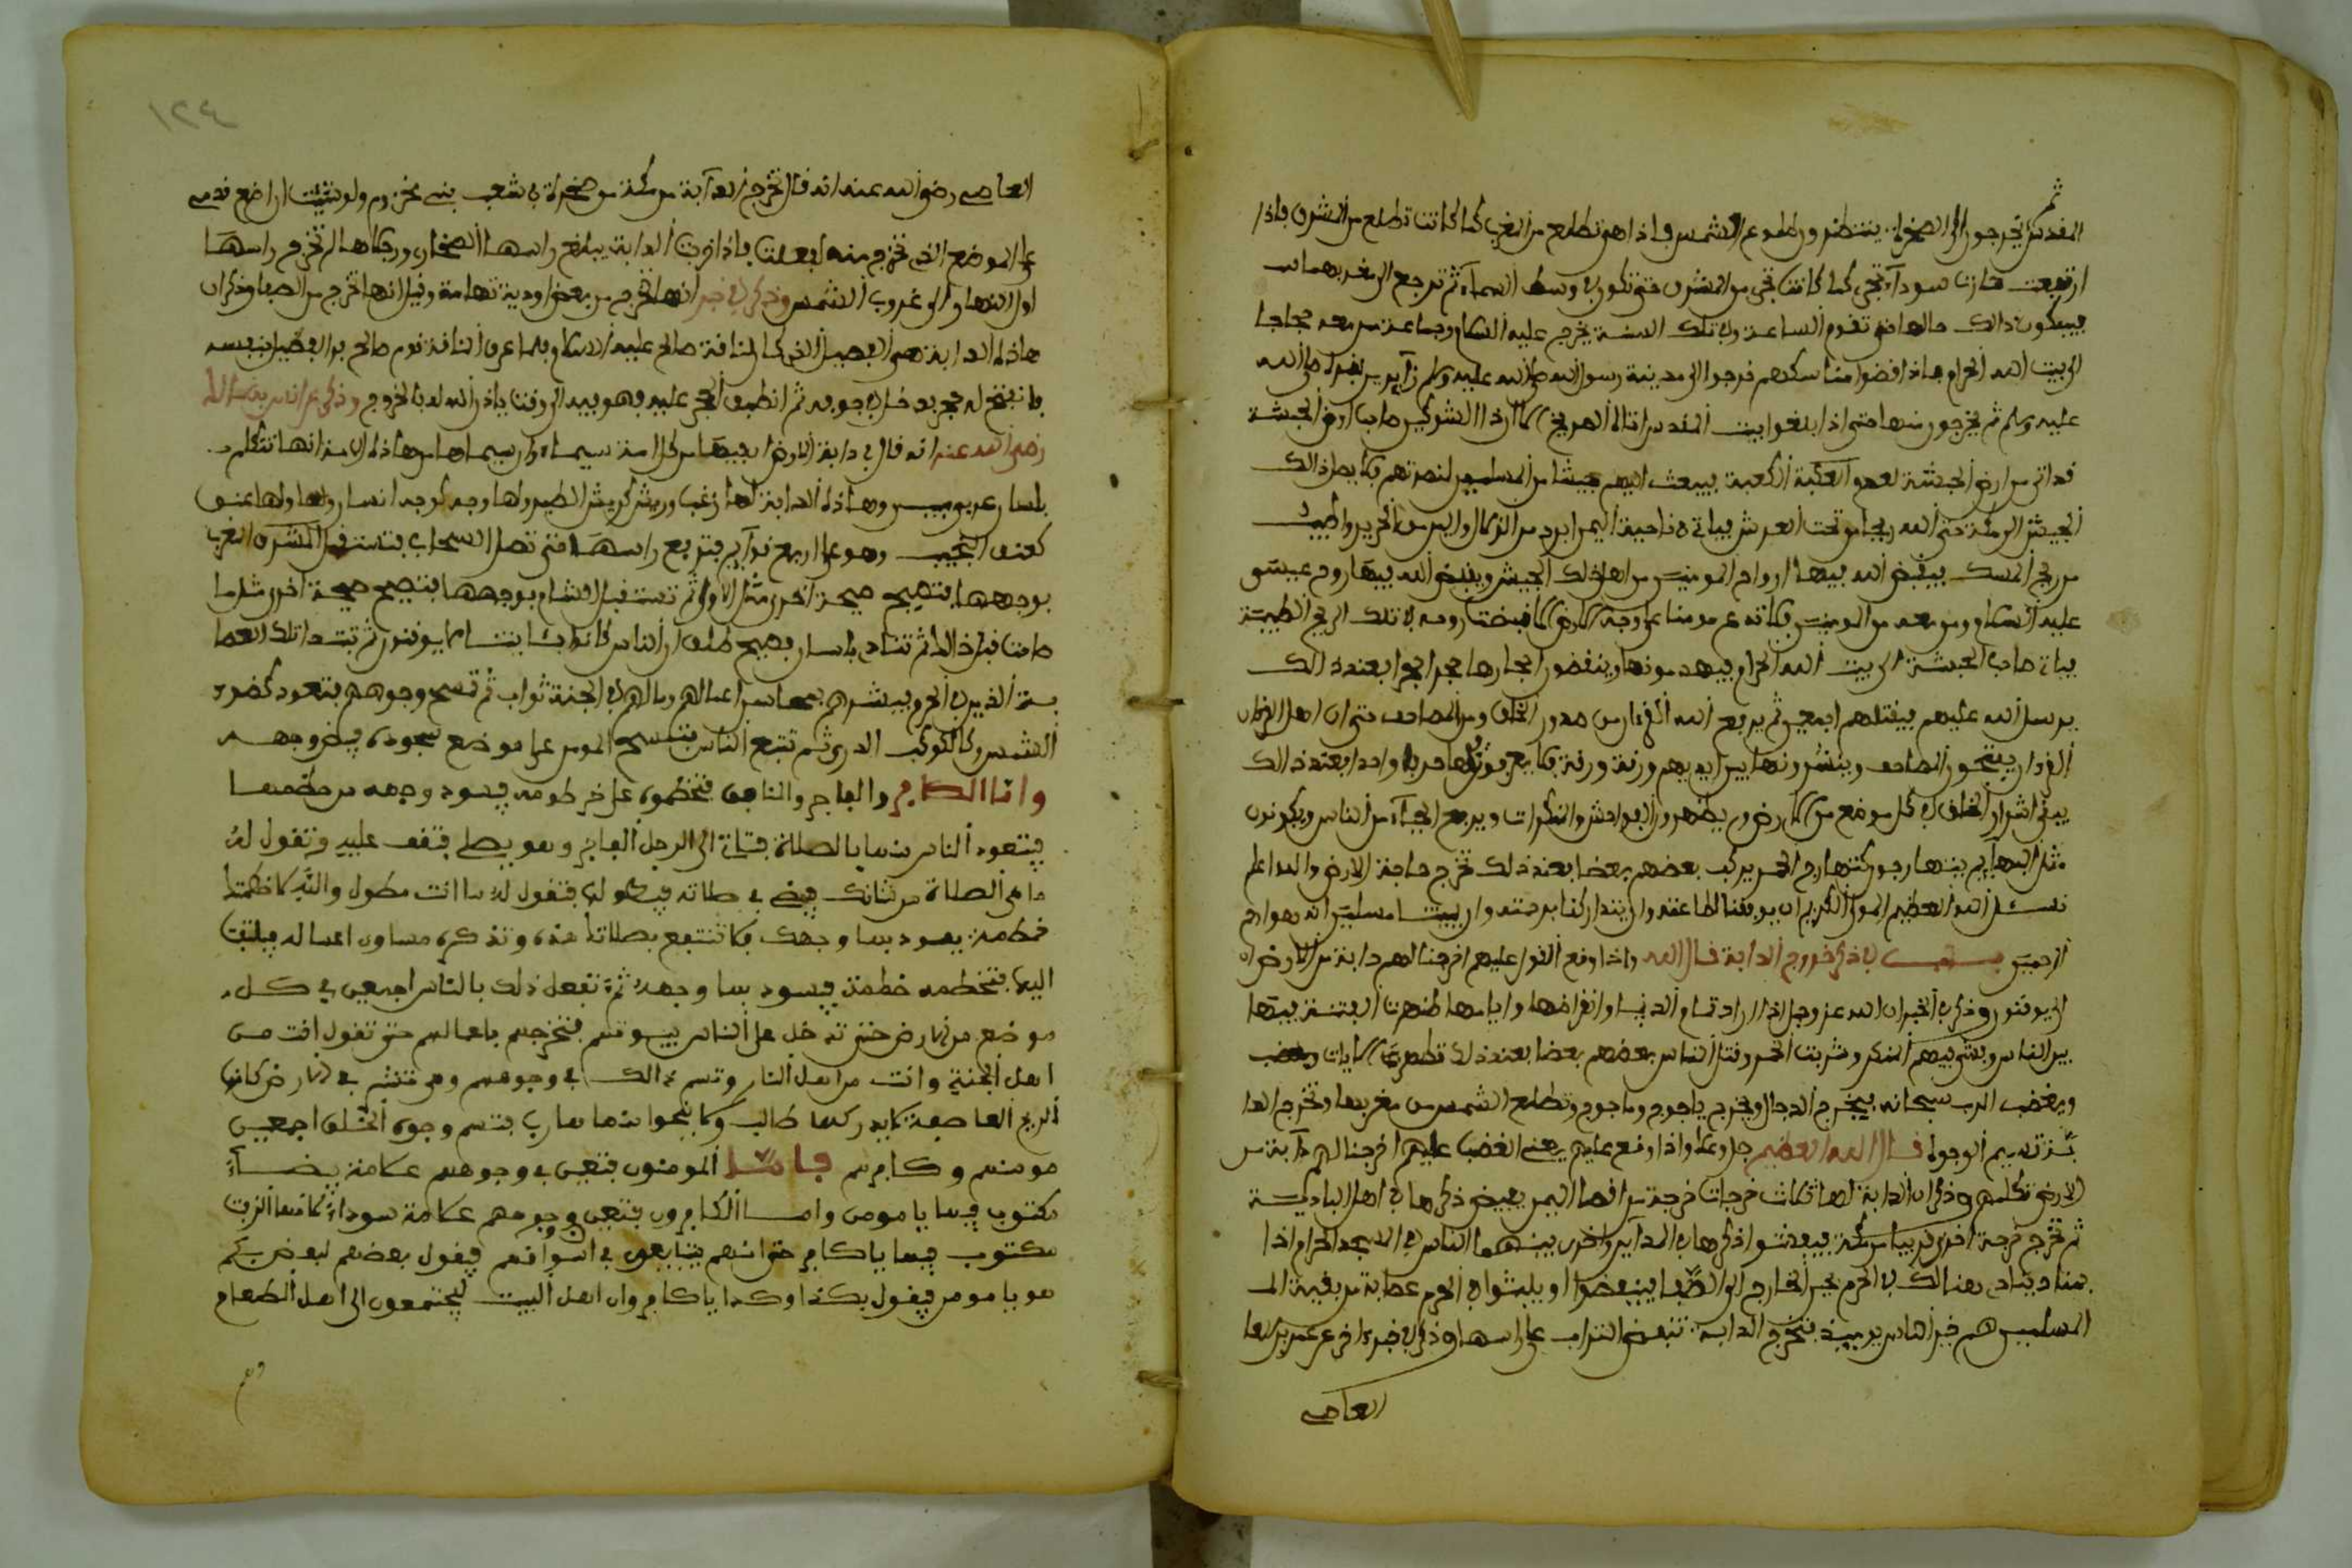 المقدس ثم يخرجون إلى الصخرة ينتظرون طلوع الشمس فاذا هي تطلع من المغرب كما كانت تطلع من المشرق فاذا
ارتفعت صارت سوداء تجي كما كانت تجي من المشرق حتى تكون في وسط السماء ثم ترجع الى مغربها
فيكون ذالك حالها حتى تقوم الساعة وفي تلك السنة يخرج عليه السلام وجماعة من معه حجاجا
الى بيت الله الحرام فاذا قضوا مناسكهم خرجوا الى مدينة رسول الله صلى الله عليه وسلم زايرين لقبره صلى الله
عليه وسلم ثم يخرجون منها حتى اذا بلغوا بيت المقدس اتاه الصريخ الا ان ذا الشويكتين صاحب ارض الحبشة
قد اتى من ارض الحبشة لهدم الكعبة فيبعث اليهم جيشا من المسلمين لنصرتهم فلا يصل ذالك
الجيش الى مكة حتى الله ريحا من تحت العرش فياتي ناحية اليمن ابرد من الزلال والين من الحرير واطيب
من ريح المسك فيقبض الله فيها ارواح المومنين من اهل ذلك الجيش ويقبض الله فيها روح عيسى
عليه السلام ومن معه من المومنين فلا تدع مومنا على وجه الارض الا قبضت روحه في تلك الريح الطيبة
فياتي صاحب الحبشة الى بيت الله الحرام فيهدمونها وينقضون احجارها حجرا حجرا فعند ذالك
يرسل الله عليهم فيقتلهم اجمعين ثم يرفع الله القرءان من صدور الخلق ومن المصاحف حتى ان اهل
القرءان يفتحون المصاحف وينشرونها بين ايديهم ورقة ورقة فلا يعرفون منها حرفا واحدا فعند ذالك
يبقى اشرار الخلق في كل موضع من الارض ويظهرون الفواحش والمنكرات ويرفع الحياء من الناس ويكونون
مثل البهايم يتهارجون كتهارج الحمر يركب بعضهم بعضا فعند ذلك تخرج دابة الارض والله اعلم
نسئل الله العظيم المولى الكريم ان يوفقنا لطاعته وان يتداركنا برحمته وان يميتنا مسلمين انه هو ارحم
الراحمين في ذكر خروج الدابة قال الله واذا وقع القول عليهم اخرجنا لهم دابة من الارض
لا يوقنون وذكر في الخبر ان الله عز وجل اذا اراد تمام الدنيا وانقراضها وايامها ظهرت الفتنة فيها
بين الناس وفشى فيهم المنكر وشربت الخمر وقتل الناس بعضهم بعضا فعند ذلك تظهر الايات
ويغضب الرب سبحانه فيخرج الدجال ويخرج ياجوج وماجوج وتطلع الشمس من مغربها وتخرج الدا
بة تسم الوجوه قال الله العظيم جل وعلا واذا وقع عليهم يعني الغضب عليهم اخرجنا لهم دابة من
الارض تكلمهم وذكر ان الدابة لها ثلاث خرجات خرجة من اقصا اليمن فيفيض ذكرها في اهل البادية
ثم تخرج خرجة اخرى قريبا من مكة فيفشوا ذكرها في المداين واخرى بينهما الناس في المسجد الحرام اذا
بمناد يناد هنالك في الحرم بحبر الخارج الى الصفا فينفضوا او يلبثوا في الحرم عصابة من بقية ال
المسلمين هم خير الناس يوميذ فتخرج الدابة تنفض التراب على راسها وذكر في خبر اخر عن عمر بن العا
العاصى
١٢٤
العاصى رضي الله عنه انه قال تخرج الدابة من مكة من صخرة في شعب بني مخزوم ولو شيت ان اضع قدمي
على الموضع الذي تخرج منه لفعلت فاذا خرجت الدابة يبلغ راسها السحاب ورجلاها لم تخرج راسها
اول النهار الى غروب الشمس وذكر في خبر انها تخرج من بعض اودية تهامة وقيل انها تخرج من الصفا وذكر ان
هاذه الدابة هي الفصيل الذي كان لناقة صالح عليه السلام فلما عقر الناقة قوم صالح فر الفصيل بنفسه
فانفتح له حجر فدخل في جوفه ثم انطبق الحجر عليه فهو فيه الى وقت ياذن الله له بالخروج وذكر عن
رضي الله عنه انه قال في دابة الارض ان فيها من كل امة سيماه وان سيماها من هاذه الامة انها تتكلم
بلسان عربي مبين وهاذه الدابة لها زغب وريش كريش الطير ولها وجه كوجه انسان ولها عنق
كعنق النجيب وهو على اربع قوايم فترفع راسها حتى تصل السحاب فتستقبل المشرق
بوجهها فتصيح صيحة اخرى مثل الاولى ثم تستقبل الشام بوجهها فتصيح صيحة اخرى مثل ما
صاحت قبل ذالك ثم تناد بلسان فصيح طلق ان الناس كانوا باياتنا لا يوقنون ثم تبتدا تلك العصا
بة الذين في الحرم فيبشرهم بمحاسن اعمالهم ومالهم في الجنة ثواب ثم تمسح وجوههم فتعود كضوء
الشمس وكالكوكب الدري ثم تتبع الناس فتمسح المومن على موضع سجوده فيضئ وجهه
واما الكافر والفاجر والمنافق فتخطموه على خرطومه فيسود وجهه من خطمها
فيتعوذ الناس منها بالصلاة فتاتي الى الرجل الفاجر وهو يصلي فتقف عليه وتقول له
ما هي الصلاة من شانك فيمضي في صلاته فيطول فتقول له ما انت مطول والله لاخطمنك
خطمة يسود بها وجهك فلا تنتفع بصلاتك هذه وتذكره مساوى اعماله فيلتفت
اليها فتخطمه خطمة فيسود بها وجهه ثم تفعل ذلك بالناس اجمعين في كل
موضع من الارض حتى تدخل على الناس بيوتهم فتخرجهم باعمالهم حتى تقول انت من
اهل الجنة وانت من اهل النار وتسم ذالك في وجوههم وهي تنشر في الارض كانها
الريح العاصفة لا يدركها طالب ولا ينجوا منها هارب فتسم وجوه الخلق اجمعين
مومنهم وكافرهم فاما المومنون فتبقى في وجوههم علامة بيضاء
مكتوب فيها يا مومن واما الكافرون فتبقى في وجوههم علامة سوداء كانها الزفت
مكتوب فيها يا كافر حتى انهم يتبايعون في اسواقهم فيقول بعضهم لبعض بكم
هو يا مومن فيقول بكذا وكذا يا كافر وان اهل البيت ليجتمعون الى اهل الطعام